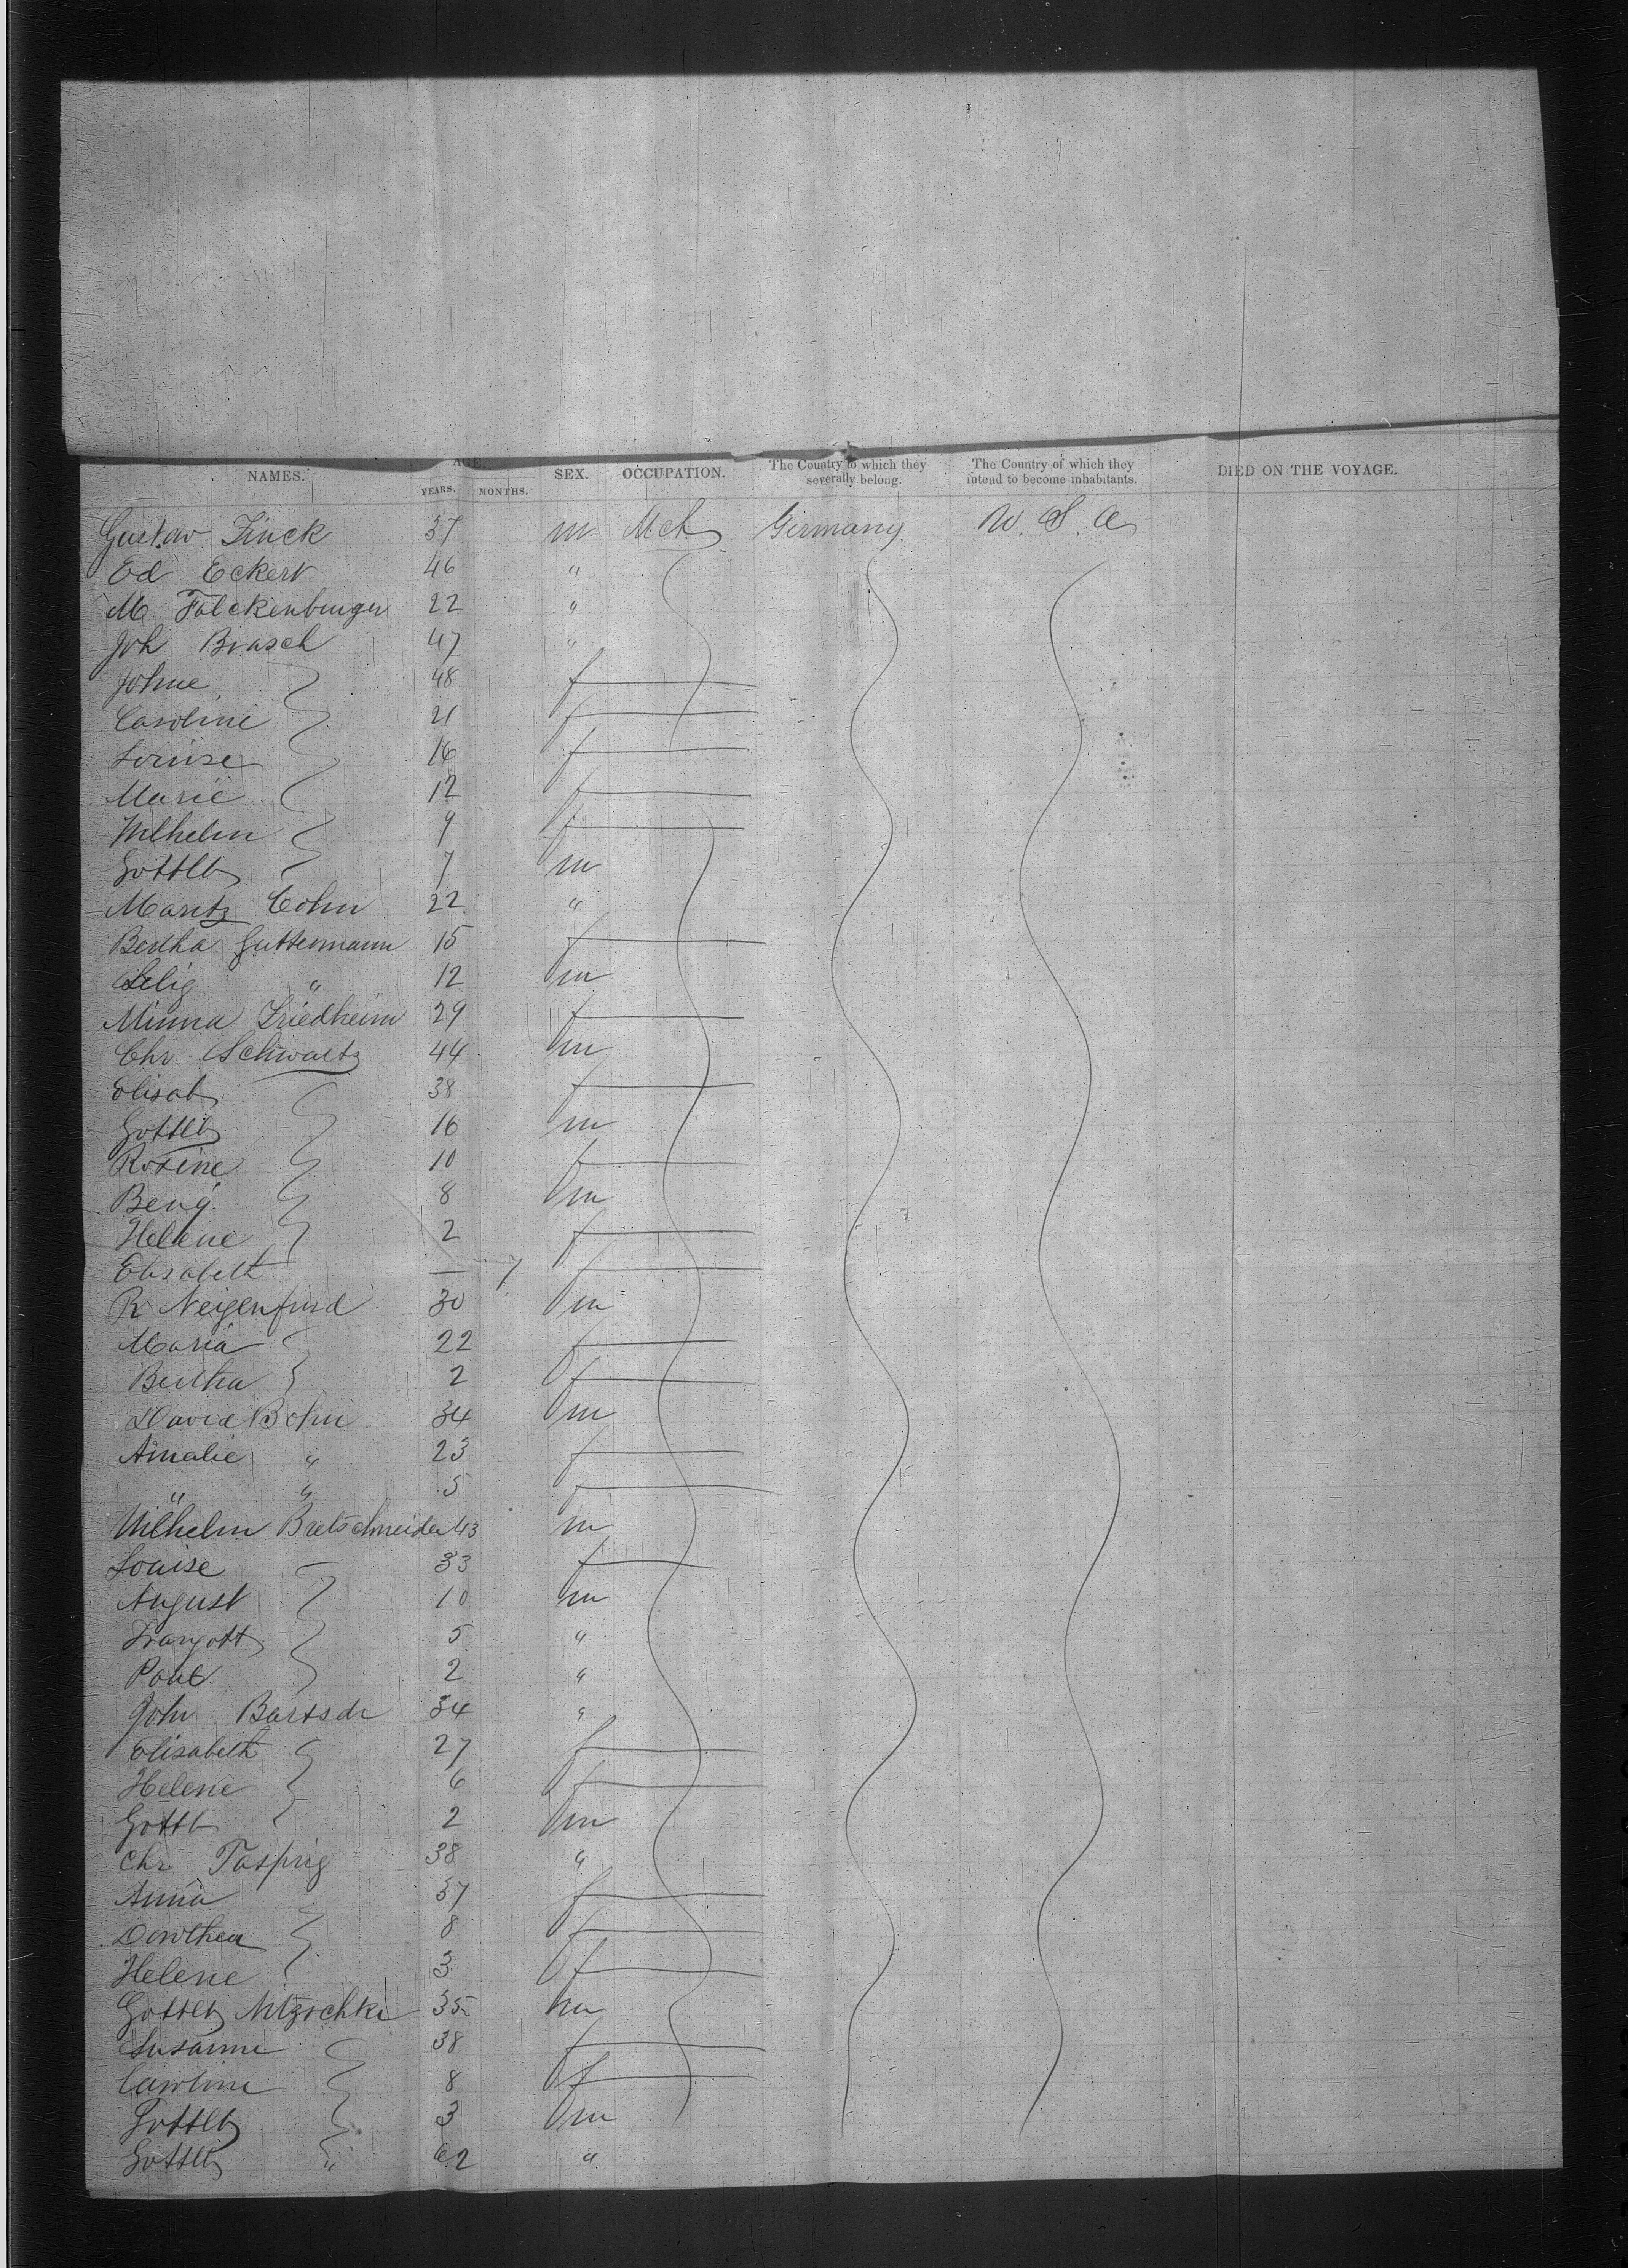 NAMES. AGE. SEX. OCCUPATION. The Country to which they severally belong. The Country of which they intend to become inhabitants. DIED ON THE VOYAGE.
YEARS. MONTHS.
Gustav Zinck 37 m Mch Germany. U. S. A
Ed Eckert 46 "
M Falckenburger 22 "
Joh Brasch 47 "
Johne 48 f
Caroline 21 f
Louise 16 f
Marie 12 f
Wilhelm 9 f
Gottlb 7 m
Maritz Cohn 22 "
Bertha Guttermann 15 f
Selig " 12 m
Minna Friedheim 29 f
Chr Schwartz 44 m
Elisab 38 f
Gottlb 16 m
Rosine 10 f
Benj. 8 m
Helene 2 f
Elisabeth — 7 f
R Neigenfind 30 m
Maria 22 f
Bertha 2 f
David Bohn 34 m
Amalie " 23 f
" " 5 f
Wilhelm Bretschneider 43 m
Louise 33 f
August 10 m
Trangott 5 "
Paul 2 "
John Bartsch 34 "
Elisabeth 27 f
Helene 6 f
Gottb 2 m
Chr Tasprig 38 "
Anna 37 f
Dorothea 8 f
Helene 3 f
Gottlb Nitzschke 35 m
Susanne 38 f
Caroline 8 f
Gottlb 3 m
Gottlb " 62 "